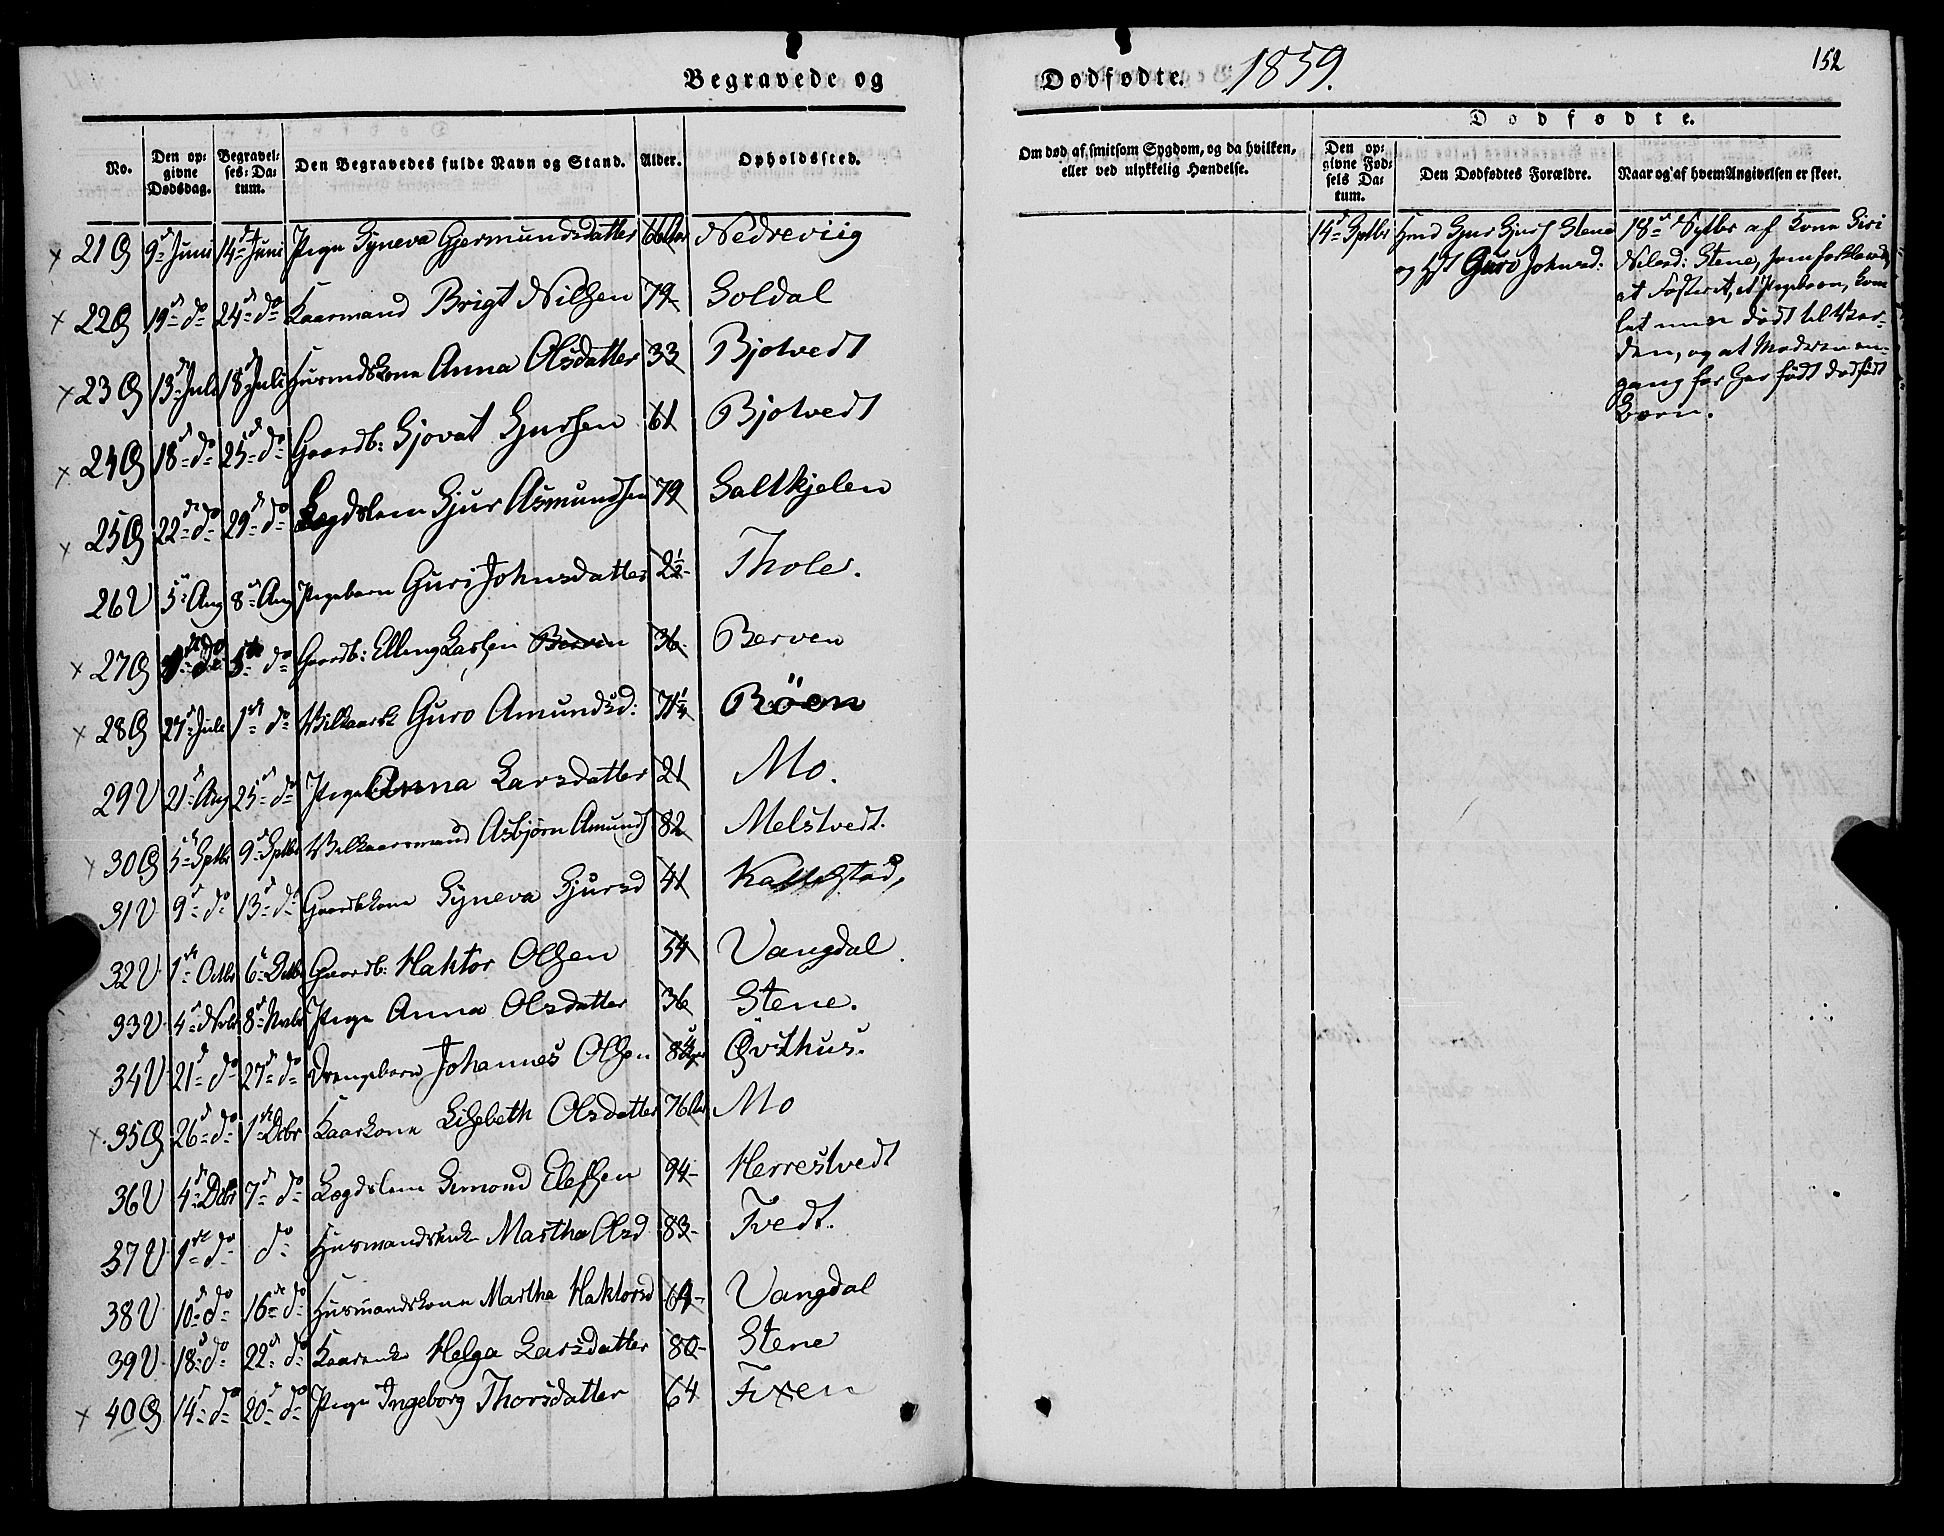 Begravede og
No. Den opgivne Dødsdag. Begravelses-Datum. Den Begravedes fulde Navn og Stand. Alder. Opholdssted.
21Ø 9de Juni 14de Juni Pige Syneva Gjermundsdatter 66 Aar Nedreviig
22Ø 19de do 24de do Kaarmand Brigt Nilssen 79 Soldal
23Ø 13de Juli 18de Juli Husmdskone Anna Olsdatter 33 Bjotvedt
24Ø 18de do 25de do Gaardb: Sjovat Sjursen 61 Bjotvedt
25Ø 22de do 29de do Lægdslem Sjur Asmundsen 79 Saltkjelen
26V 5te Aug 8de Aug Pigebarn Guri Johnsdatter 2½ Tholer.
27Ø do Gaardb: Elling Larssen Berven 36 Berven
28Ø 27de Juli 1ste do Vilkaarsk Guro Amundsd: 71¼ Röen
29V 21de Aug 25de do Pige Anna Larsdatter 21 Mo.
30Ø 5te Sptbr 9de Sptbr Vilkaarsmand Asbjørn Amunds 82 Melstvedt.
31V 9de do 13de do Gaardbkone Syneva Sjursd 41
32V 1ste Octbr 6te Octbr Gaardb: Haktor Olssen 54 Vangdal
33V 4de Nvbr 8de Nvbr Pige Anna Olsdatter 36 Stene.
34V 21de do 27de do Drengebarn Johannes Olssen Øvsthus.
35Ø 26de do 1ste Dcbr Kaarkone Lisbeth Olsdatter 76 Aar Mo
36V 4de Dcbr 7de do Lægdslem Simond Elefsen 94 Herrestvedt
37V 1ste do do Husmandsenke Martha Olsd 83 Tvedt.
38V 10de do 16de do Husmandskone Martha Haktorsd 64 Vangdal
39V 18de do 22de do Kaarenke Helga Larsdatter 80 Stene
40Ø 14de do 20de do Pige Ingeborg Thorsdatter 64 Fixen
Dødfødte. 1859. 152
Dødfødte.
Om død af smitsom Sygdom, og da hvilken, eller ved ulykkelig Hændelse. Den opgivne Fødsels Datum. Den Dødfødtes Forældre. Naar og af hvem Angivelsen er skeet.
14de Sptbr Hmd Sjur Sjurs Stene
og Hst Guro Johnsd.
18de Sptbr af Kone Siri
Nilsd: Stene, som forklarede,
at Fosteret, et Pigebarn, kom
dødt til Ver-
den, og at Moderen en-
gang før har født dødfødt
Barn.